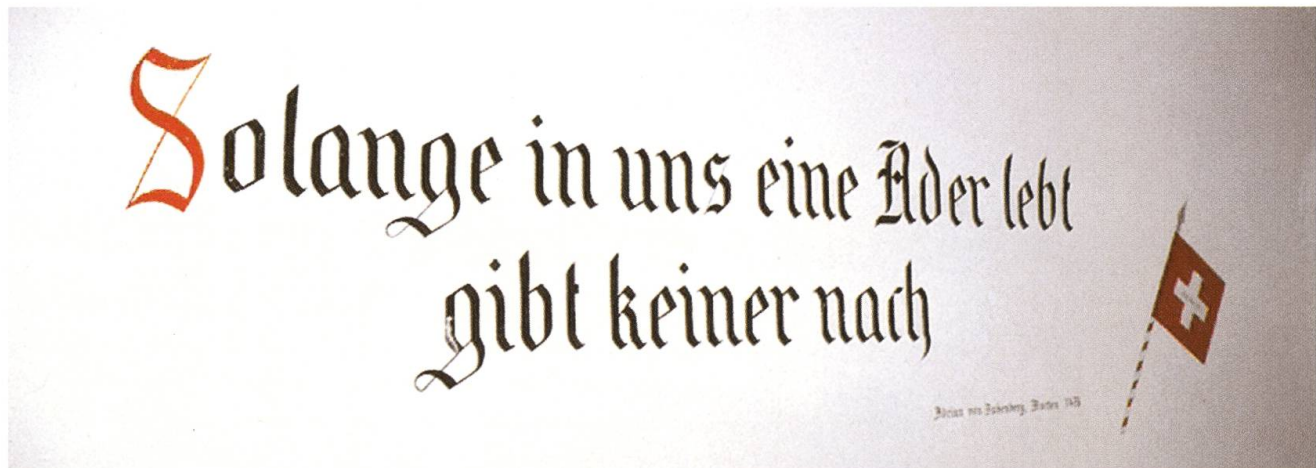 Solange in uns eine Ader lebt
gibt keiner nach
Adrian von Bubenberg, Murten 1476